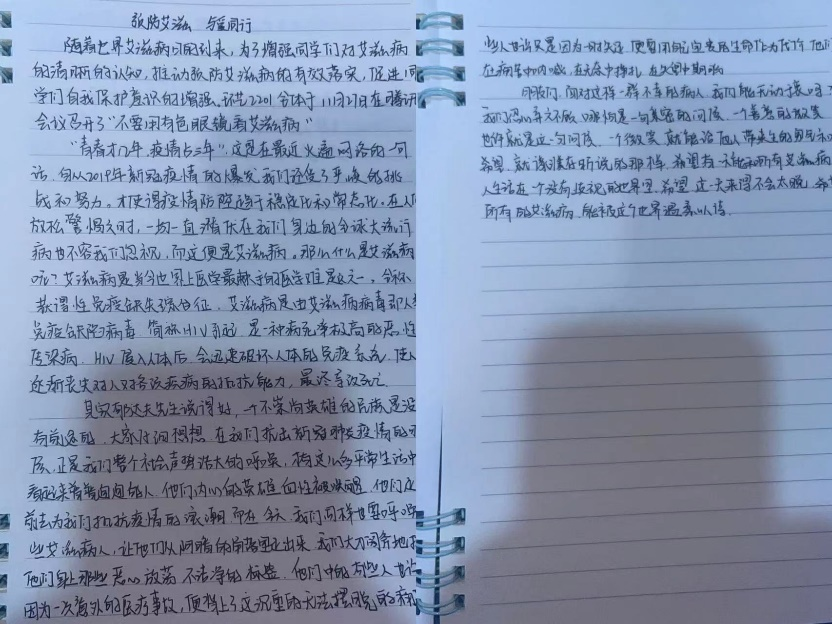 抗防艾滋 与爱同行
随着世界艾滋病日的到来，为了增强同学们对艾滋病
的清晰的认知，推动预防艾滋病的有效落实，促进同
学们自我保护意识的增强。2201全体于11月27日在腾讯
会议召开了“不要用有色眼镜看艾滋病”
“青春才几年，疫情占三年”这是在最近火遍网络的一句
话，自从2019年新冠疫情的爆发我们经受了严峻的挑
战和努力。才使得疫情防控趋于稳定化和常态化。在人们
放松警惕之时，一场一直潜伏在我们身边的全球大流行
病也不容我们忽视，而这便是艾滋病。那么什么是艾滋病
呢？艾滋病是当今世界上医学最棘手的医学难题之一。全称
获得性免疫缺失综合征，艾滋病是由艾滋病病毒即人类
免疫缺陷病毒 简称HIV引起 是一种病死率极高的恶性
传染病 HIV 侵入人体后 会迅速破坏人体的免疫系统，使人
逐渐丧失对各种疾病的抵抗能力，最终导致死亡
其实郁达夫先生说得好，一个不崇尚英雄的民族是没
有前途的，大家仔细想想 在我们抗击新冠肺炎疫情的
正是我们整个社会声势浩大的呼唤，有这么多平常生活中
看起来普普通通的人 他们内心的英雄血性被唤醒 他们
前去为我们抵抗疫情的浪潮 而在今天 我们同样也要呼唤
些艾滋病人，让他们从阴暗的角落里走出来 我们大刀阔斧地
他们身上那些恶心 放荡 不洁净的标签，他们中的有些人也许
因为一次意外的医疗事故，便背上了这沉重的无法摆脱的病
些人也许只是因为一时失足 便要用自己宝贵的生命作为代价 他们
在病室中呐喊，在无奈中挣扎 在失望中期盼
同学们，面对这样一群不幸的病人 我们能无动于衷吗？
我们一句简单的问候 一个善意的微笑
也许就是这一句问候，一个微笑 就能给他人带来生的勇气和
希望 就该像在听说的那样，希望有一天能和所有艾滋病
人生活在一个没有歧视的世界里 希望 这一天来得不会太晚
所有的艾滋病 能被这个世界温柔以待